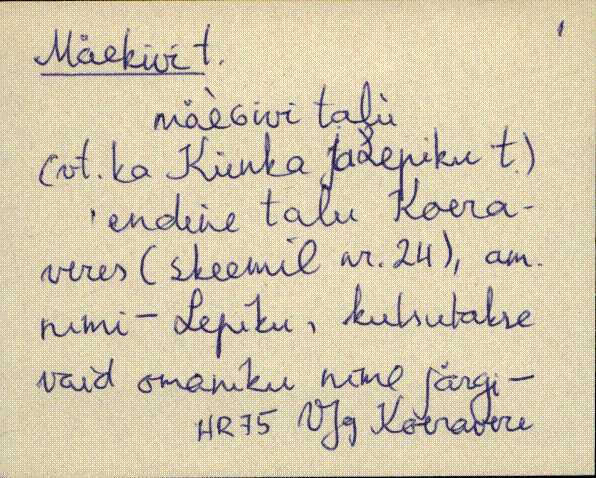 Mäekivi t.
mäèɢivi talù
(vt. ka Kiinka ja Lepiku t.)
endine talu Koera-
veres (skeemil nr. 24), am.
nimi – Lepiku, kutsutakse
vaid omaniku nime järgi –
HR75 VJg Koeravere